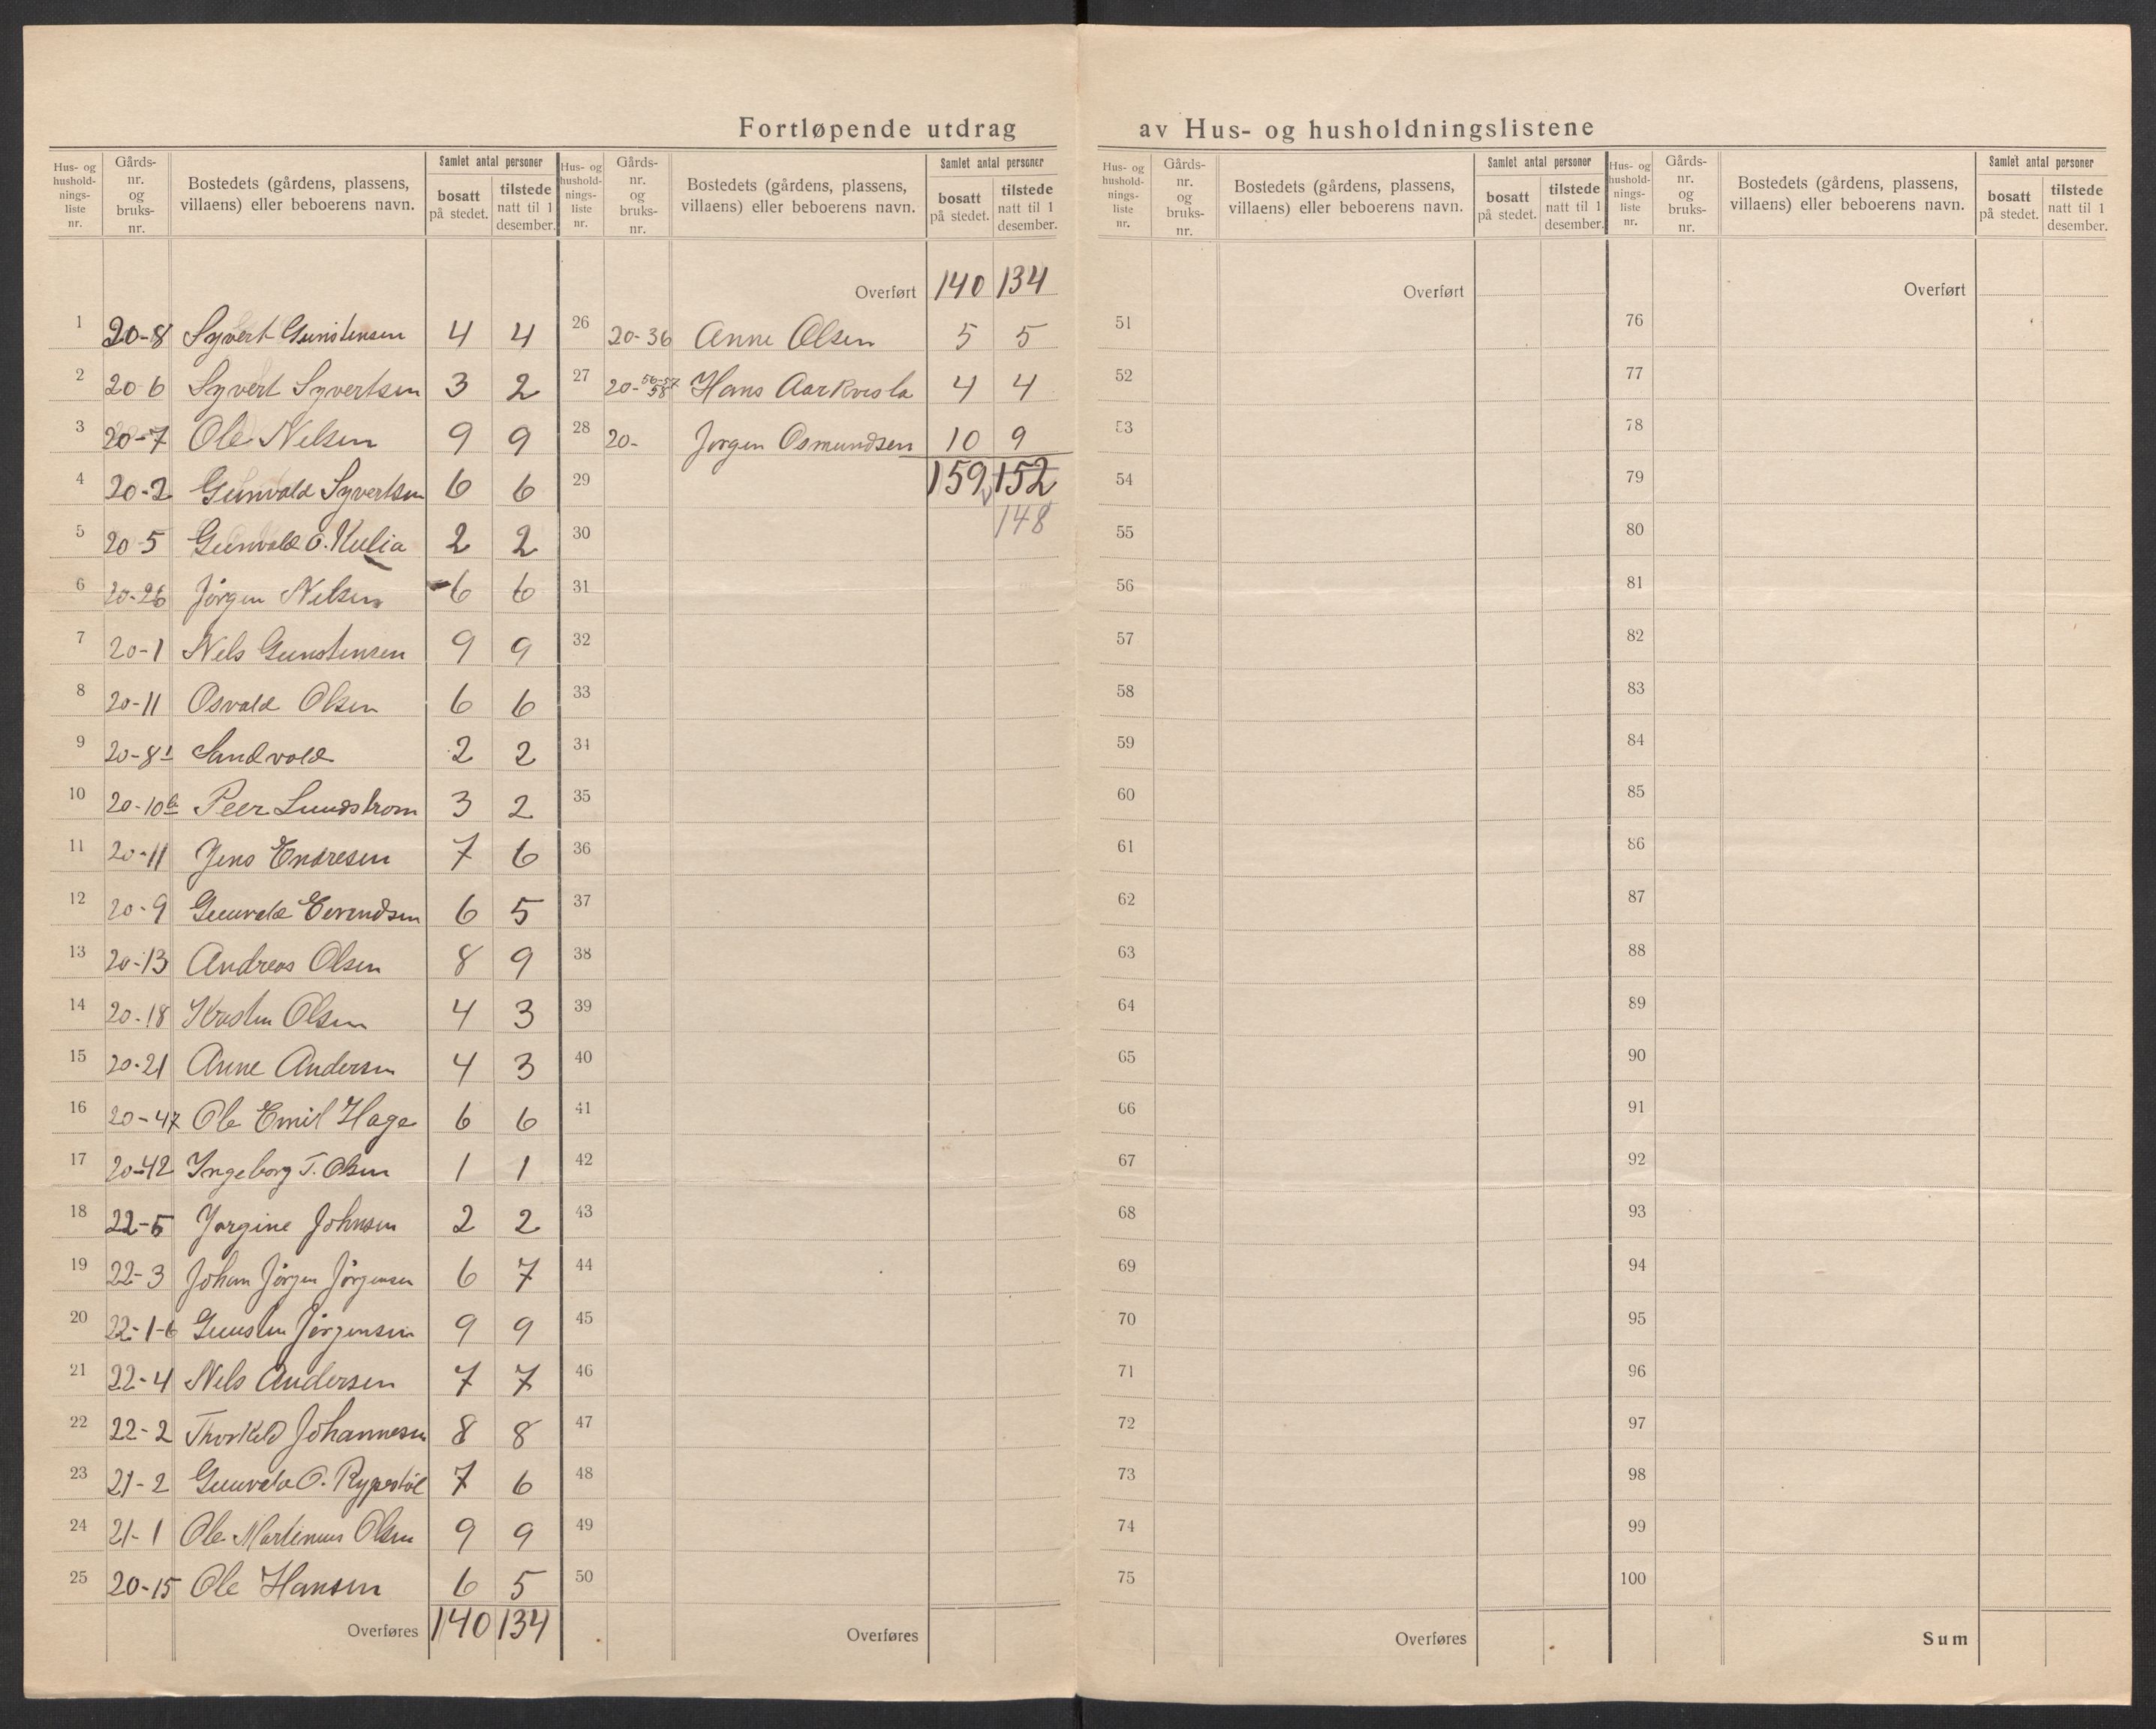 Fortløpende utdrag av Hus- og husholdningslistene
Hus- og husholdningsliste nr. | Gårds-nr. og bruks-nr. | Bostedets (gårdens, plassens, villaens) eller beboerens navn. | Samlet antal personer | bosatt på stedet. | tilstede natt til 1 desember.
1 20-8 Syvert Gunstensen 4 4
2 20 6 Syvert Syvertsen 3 2
3 20-7 Ole Nelsen 9 9
4 20-2 Gunvald Syvertsen 6 6
5 20-5 Gunvald O. Kulia 2 2
6 20-26 Jørgen Nelsen 6 6
7 20-1 Nels Gunstensen 9 9
8 20-11 Osvald Olsen 6 6
9 20-81 Sandvold 2 2
10 20-10b Peer Lundstrom 3 2
11 20-11 Jens Endresen 7 6
12 20-9 Gunvald Evendsen 6 5
13 20-13 Andreas Olsen 8 9
14 20-18 Kristen Olsen 4 3
15 20-21 Anne Andersen 4 3
16 20-47 Ole Emil Hage 6 6
17 20-42 Ingeborg T. Olsen 1 1
18 22-5 Jørgine Johnsen 2 2
19 22-3 Johan Jörgen Jörgensen 6 7
20 22-1-6 Gunsten Jörgensen 9 9
21 22-4 Nels Andersen 7 7
22 22-2 Thorkild Johannesen 8 8
23 21-2 Gunvald O. Rypestöl 7 6
24 21-1 Ole Martinius Olsen 9 9
25 20-15 Ole Hansen 6 5
Overføres 140 134
Hus- og husholdningsliste nr. | Gårds-nr. og bruks-nr. | Bostedets (gårdens, plassens, villaens) eller beboerens navn. | Samlet antal personer | bosatt på stedet. | tilstede natt til 1 desember.
Overført 140 134
26 20-36 Anne Olsen 5 5
27 20-56-57 58 Hans Aarkvisla 4 4
28 20- Jørgen Osmundsen 10 9
29 159 152
30 148
31
32
33
34
35
36
37
38
39
40
41
42
43
44
45
46
47
48
49
50
Overføres
Hus- og husholdningsliste nr. | Gårds-nr. og bruks-nr. | Bostedets (gårdens, plassens, villaens) eller beboerens navn. | Samlet antal personer | bosatt på stedet. | tilstede natt til 1 desember.
Overført
51
52
53
54
55
56
57
58
59
60
61
62
63
64
65
66
67
68
69
70
71
72
73
74
75
Overføres
Hus- og husholdningsliste nr. | Gårds-nr. og bruks-nr. | Bostedets (gårdens, plassens, villaens) eller beboerens navn. | Samlet antal personer | bosatt på stedet. | tilstede natt til 1 desember.
Overført
76
77
78
79
80
81
82
83
84
85
86
87
88
89
90
91
92
93
94
95
96
97
98
99
100
Sum